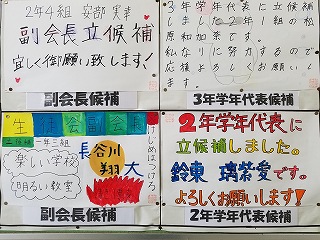 2年4組 安部 実幸
副会長立候補
宜しく御願い致します!
副会長候補
3年学年代表に立候補
しました2年1組の松
原和加菜です。
私なりに努力するので
応援よろしくお願いし
ます。
3年学年代表候補
生徒会副会長
立候補 二年三組
楽しい学校
明るい教室
長谷川
翔大
けじめをつけろ
副会長候補
2年学年代表に
立候補しました。
鈴東 璃菜愛です。
よろしくお願いします!
2年学年代表候補